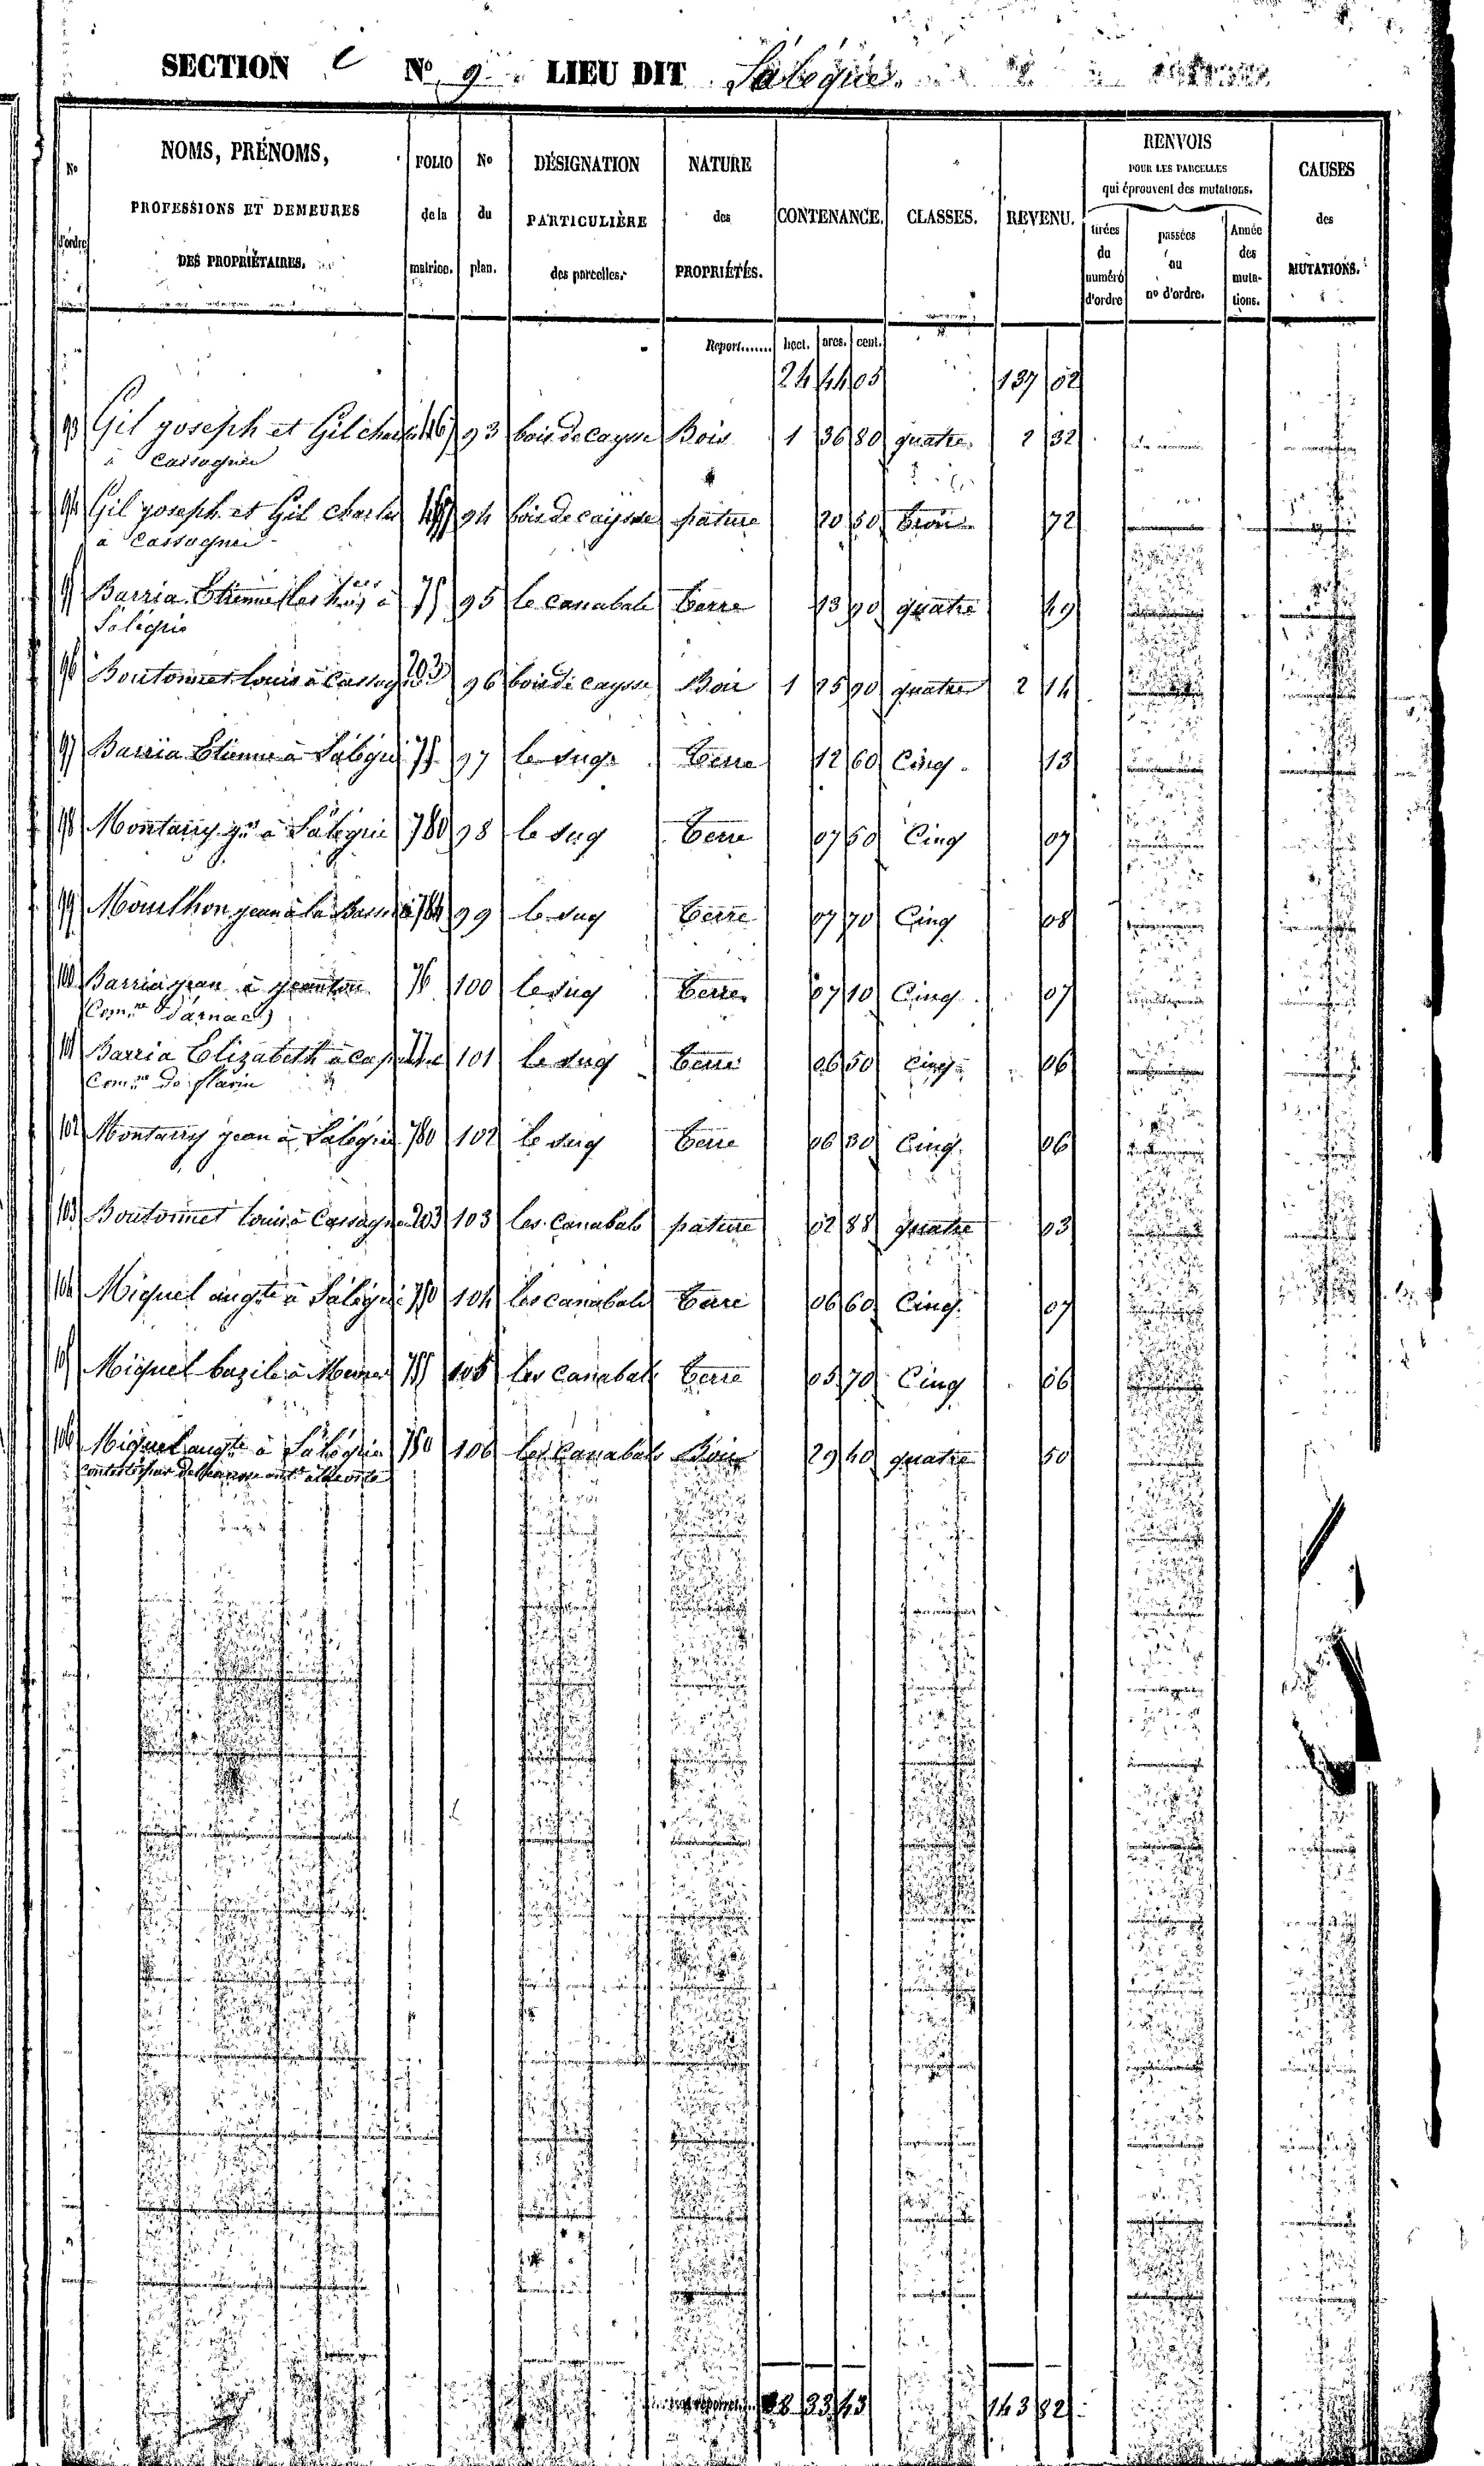 SECTION C No 9 LIEU DIT Salèquié.
No d'ordre | NOMS, PRÉNOMS, PROFESSIONS ET DEMEURES DES PROPRIÉTAIRES. | FOLIO de la matrice. | No du plan. | DÉSIGNATION PARTICULIÈRE des parcelles. | NATURE des PROPRIÉTÉS. | CONTENANCE. | CLASSES. | REVENU. | RENVOIS POUR LES PARCELLES qui éprouvent des mutations. | CAUSES des MUTATIONS.
tirées du numéro d'ordre | passées au no d'ordre. | Année des mutations.
Report...... hect. ares. cent.
24 44 05 137 02
93 Gil joseph et Gil charles 467 93 bois de caysse Bois 1 36 80 quatre 2 32
à Cassagnes
94 Gil joseph et Gil charles 94 bois de caysse pature 20 50 trois 72
à Cassagnes
95 Barria Etienne les hérs à 75 95 le canabals terre 13 90 quatre 49
Salèquié
96 Boutonnet louis à Cassagnes 203 96 bois de caysse Bois 1 25 90 quatre 2 14
97 Barria Etienne à Salèquié 75 97 le suq terre 12 60 Cinq 13
98 Montarry jn à Salèquié 780 98 le suq terre 07 50 Cinq 07
99 Mourlhon jean à la 784 99 le suq terre 07 70 Cinq 08
100 Barria jean à 76 100 le suq terre 07 10 Cinq 07
(Comne d'arnac)
101 Barria Elizabeth à 77 101 le suq terre 06 50 Cinq 06
Comne de flavin
102 Montarry jean à Salèquié 780 102 le suq terre 06 30 Cinq 06
103 Boutonnet louis à Cassagnes 203 103 les Canabals pature 02 88 quatre 03
104 Miquel augte à Salèquié 750 104 les canabals terre 06 60 Cinq 07
105 Miquel bazile à 755 105 les canabals terre 05 70 Cinq 06
106 Miquel augte à Salèquié 750 106 les Canabals Bois 29 40 quatre 50
28 33 43 143 82